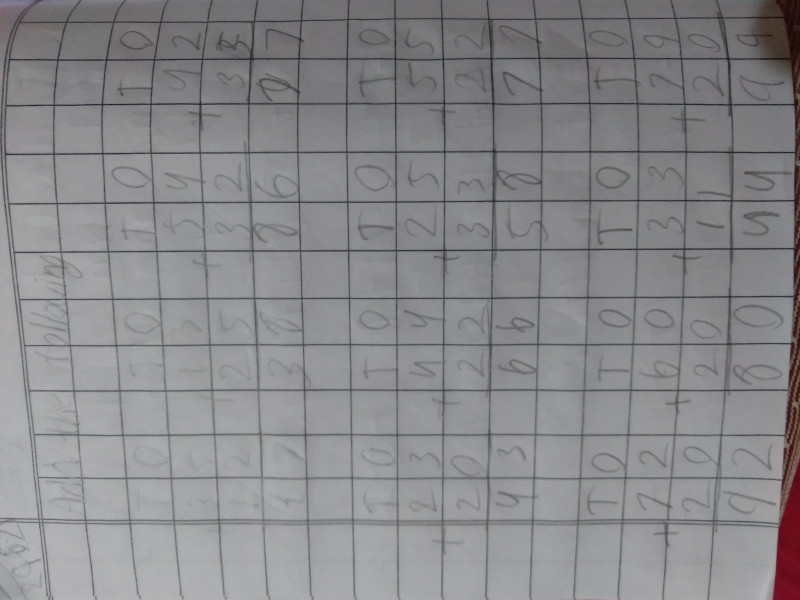 Add the following
T O T O T O T O
3 5 1 3 5 4 4 2
+ 1 2 + 2 5 + 3 2 + 3 5
4 7 3 8 8 6 7 7
T O T O T O T O
2 3 4 4 2 5 5 5
+ 2 0 + 2 2 + 3 3 + 2 2
4 3 6 6 5 8 7 7
T O T O T O T O
7 2 6 0 3 3 7 9
+ 2 0 + 2 0 + 1 1 + 2 0
9 2 8 0 4 4 9 9